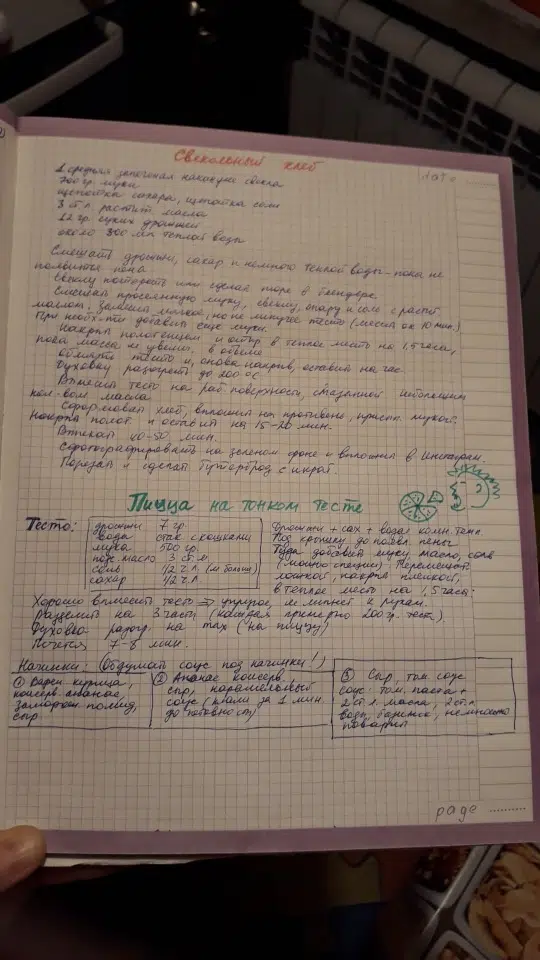 Свекольный хлеб
1 средняя запечённая накануне свекла
700 гр. мука
щепотка сахара, щепотка соли
3 ст.л. растит масла
12 гр. сухих дрожжей
около 300 мл теплой воды
Смешать дрожжи, сахар и немного теплой воды - пока не
появится пена
Свеклу натереть или сделать пюре в блендере.
Смешать просеянную муку, свеклу, опару и соль с растит.
маслом, замесить мягкое, но не липучее тесто (месить ок 10 мин.)
При необх-ти добавить еще муки.
Накрыть полотенцем и остав. в теплое место на 1,5 часа,
пока масса не увелич. в объеме
обмять тесто и, снова накрыв, оставить на час
Духовку разогреть до 200 ос
Вымесить тесто на раб. поверхность, смазанной небольшим
кол-вом масла
Сформовать хлеб, выложить на противень, присып. мукой.
Накрыть полот. и оставить на 15-20 мин.
Выпекать 40-50 мин.
Сфотографировать на зеленом фоне и выложить в Инстаграм.
Порезать и сделать бутерброд с икрой.
Пицца на тонком тесте
Тесто:
дрожжи 7 гр.
вода стак. с кошками
мука 500 гр.
под. масло 3 ст.л.
соль 1/2 ч.л. (м больше)
сахар 1/2 ч.л.
Дрожжи + сах + вода комн. темп
Под крышку до появл пены
Туда добавить муку, масло, соль
(можно специи). Перемешать
ложкой, накрыть пленкой,
в теплое место на 1,5 часа.
Хорошо вымесить тесто => упругое, не липнет к рукам.
Разделить на 3 части (каждая примерно 200 гр. тест.)
Духовка разогр. на max (на пиццу)
Печется 7-8 мин.
Начинки: (Обдумать соус под начинки!)
① Варен курица,
консерв ананас,
заморож. помид,
сыр
② Ананас консерв.
сыр, карамельный
соус (клали за 1 мин
до готовности)
③ Сыр, том соус
соус: том. паста +
2 ст.л. масла, 2 ст.л.
воды, базилик, немножко
поварить
page